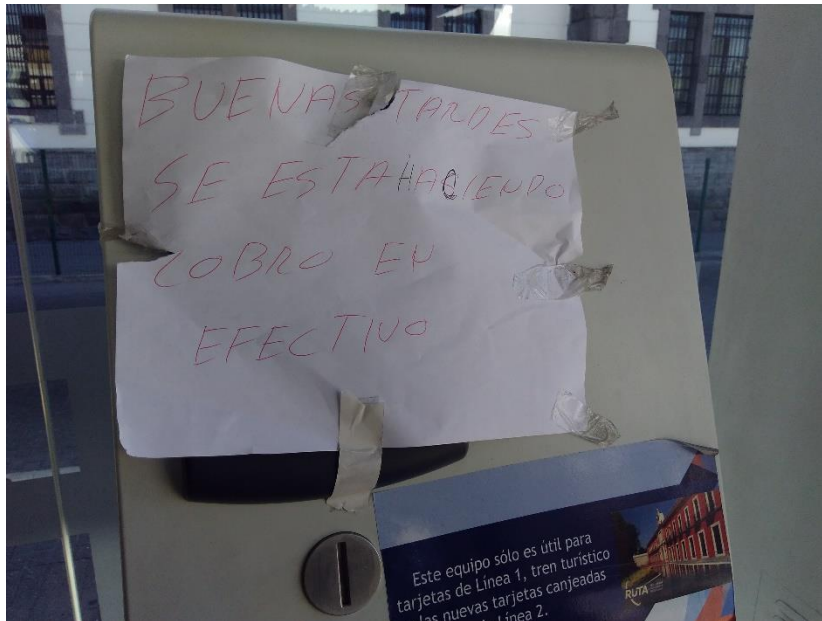 BUENAS TARDES
SE ESTA HACIENDO
COBRO EN
EFECTIVO
Este equipo sólo es útil para
tarjetas de Línea 1, tren turístico
las nuevas tarjetas canjeadas
Línea 2.
RUTA